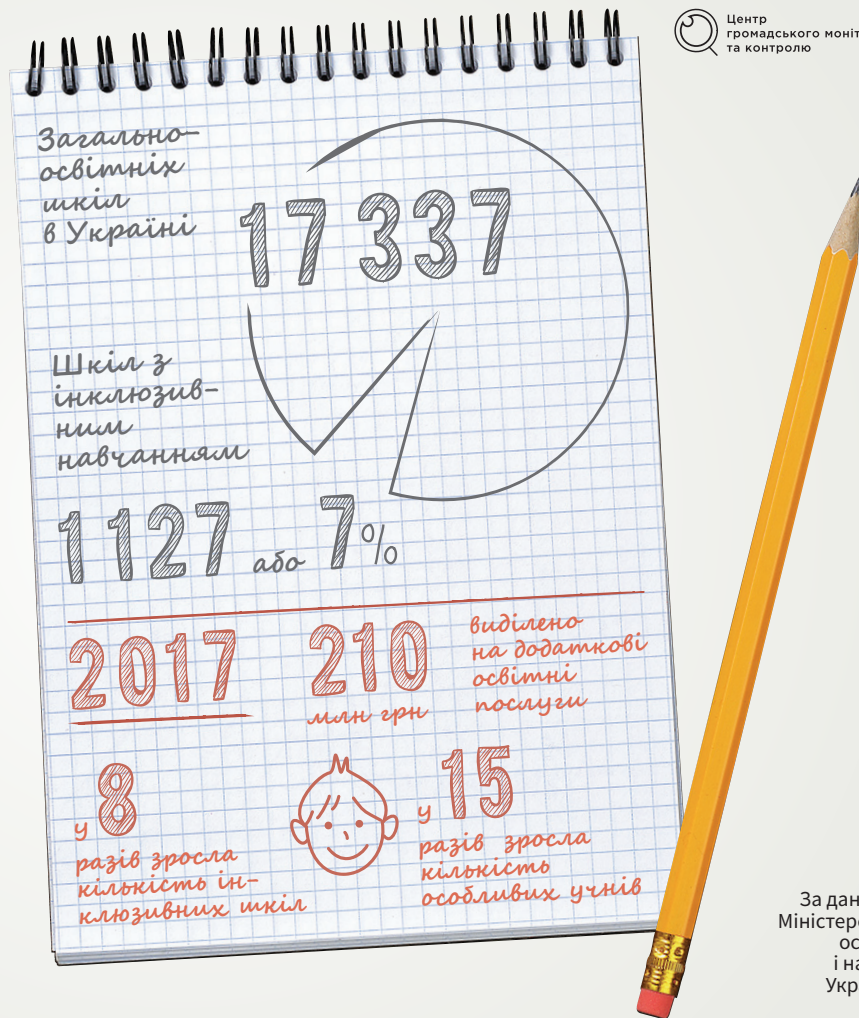 Центр
громадського моніт
та контролю
Загально-
освітніх
шкіл
в Україні
17 337
Шкіл з
інклюзив-
ним
навчанням
1127 або 7%
2017
210
млн грн
виділено
на додаткові
освітні
послуги
у 8
разів зросла
кількість ін-
клюзивних шкіл
у 15
разів зросла
кількість
особливих учнів
За дан
Міністерс
ос
і на
Укра